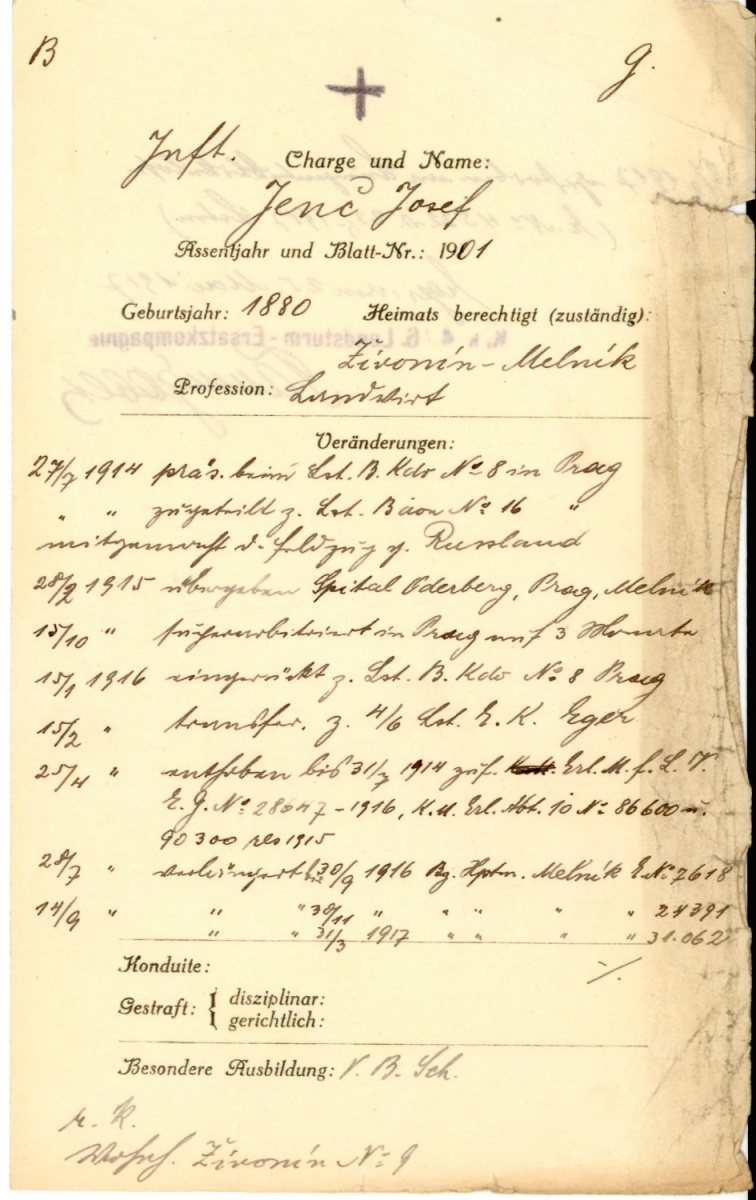 B
g.
Inft. Charge und Name:
Jenč Josef
Assentjahr und Blatt-Nr.: 1901
Geburtsjahr: 1880 Heimats berechtigt (zuständig):
K. k. 4/6. Landsturm - Ersatzkompagnie
Živonín - Melník
Profession: Landwirt
Veränderungen:
27/7 1914 präs. beim Lst. B. Kdo No 8 in Prag
" " zugeteilt z. Lst. Baon No 16 "
mitgemacht d. Feldzug g. Russland
28/2 1915 übergeben Spital Oderberg, Prag, Melník
15/10 " superarbitriert in Prag auf 3 Monate
15/1 1916 eingerückt z. Lst. B. Kdo No 8 Prag
15/2 " transfer. z. 4/6 Lst. E. K. Eger
25/4 " enthoben bis 31/7 1914 zuf. Erl. M. f. L. V.
E. G. No 28647 - 1916, K. M. Erl. Abt. 10 No 86600 u.
90300 res 1915
28/7 " verlängert bis 30/9 1916 Bz. Hptm. Melník E No 7618
14/9 " " " 30/11 " " " " " 24391
" " 31/3 1917 " " " " 31.062
Konduite: ./.
Gestraft: { disziplinar:
gerichtlich:
Besondere Ausbildung: V. B. Sch.
r. k.
Wohnh. Živonín No 9